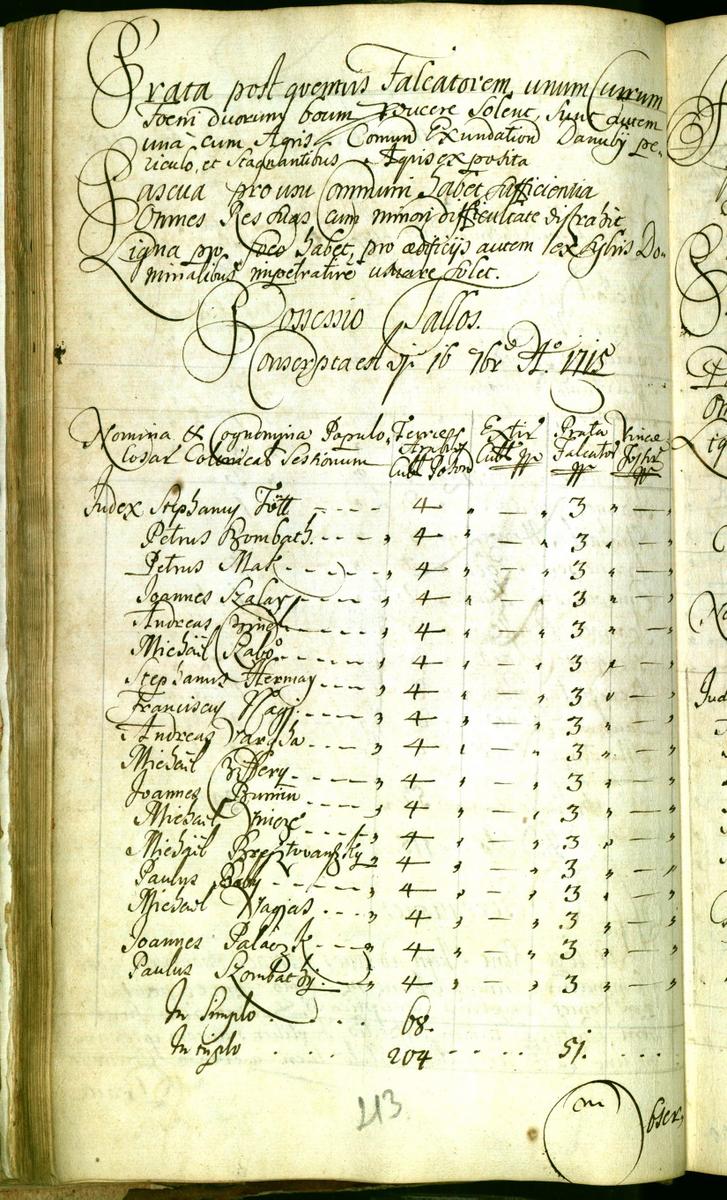 Prata post quemvis Falcatorem, unum Currum
Foeni duorum boum producere solent, sunt autem
una cum Agris Comuni Exundation Danuby pe-
riculo, et Stagnantibus Aquis exposita
Pascua pro usu Communi habet sufficientia
Omnes Res suas cum minori difficultate distrahit
Ligna pro foco habet, pro aedificijs autem ex Sylvis Do-
minalibus impetrative uti solet.
Possessio Sallos.
Conscripta est d. 16 7br A. 1715
Nomina & Cognomina Populo- Terrae Extir Prata Vineae
sar Colonicar Sessionum Arabiles Cubl Falcator Fossor
Cubl Poson
Judex Stephanus Tótt - - - - 4 " — " 3 " — "
Petrus Bombath - - - - " 4 " — " 3 " — "
Petrus Mak - - - - " 4 " — " 3 " — "
Joannes Szalay - - - - " 4 " — " 3 " — "
Andreas - - - - " 4 " — " 3 " — "
Michäil Szabo - - - - " 4 " — " 3 " — "
Stephanus Hermay - - - - " 4 " — " 3 " — "
Franciscus Nagj - - - - " 4 " — " 3 " — "
Andreas Vargha - - - - " 4 " — " 3 " — "
Michäil - - - - " 4 " — " 3 " — "
Joannes - - - - " 4 " — " 3 " — "
Michael - - - - " 4 " — " 3 " — "
Michäil Brestovanszky " 4 " — " 3 " — "
Paulus - - - - " 4 " — " 3 " — "
Michael - - - - " 4 " — " 3 " — "
Joannes Palaczk - - - - " 4 " — " 3 " — "
Paulus Szombathy - - " 4 " — " 3 " — "
In Simplo . . . . 68.
In triplo . . . . 204 . . . . 51. . . .
213
m
bser,